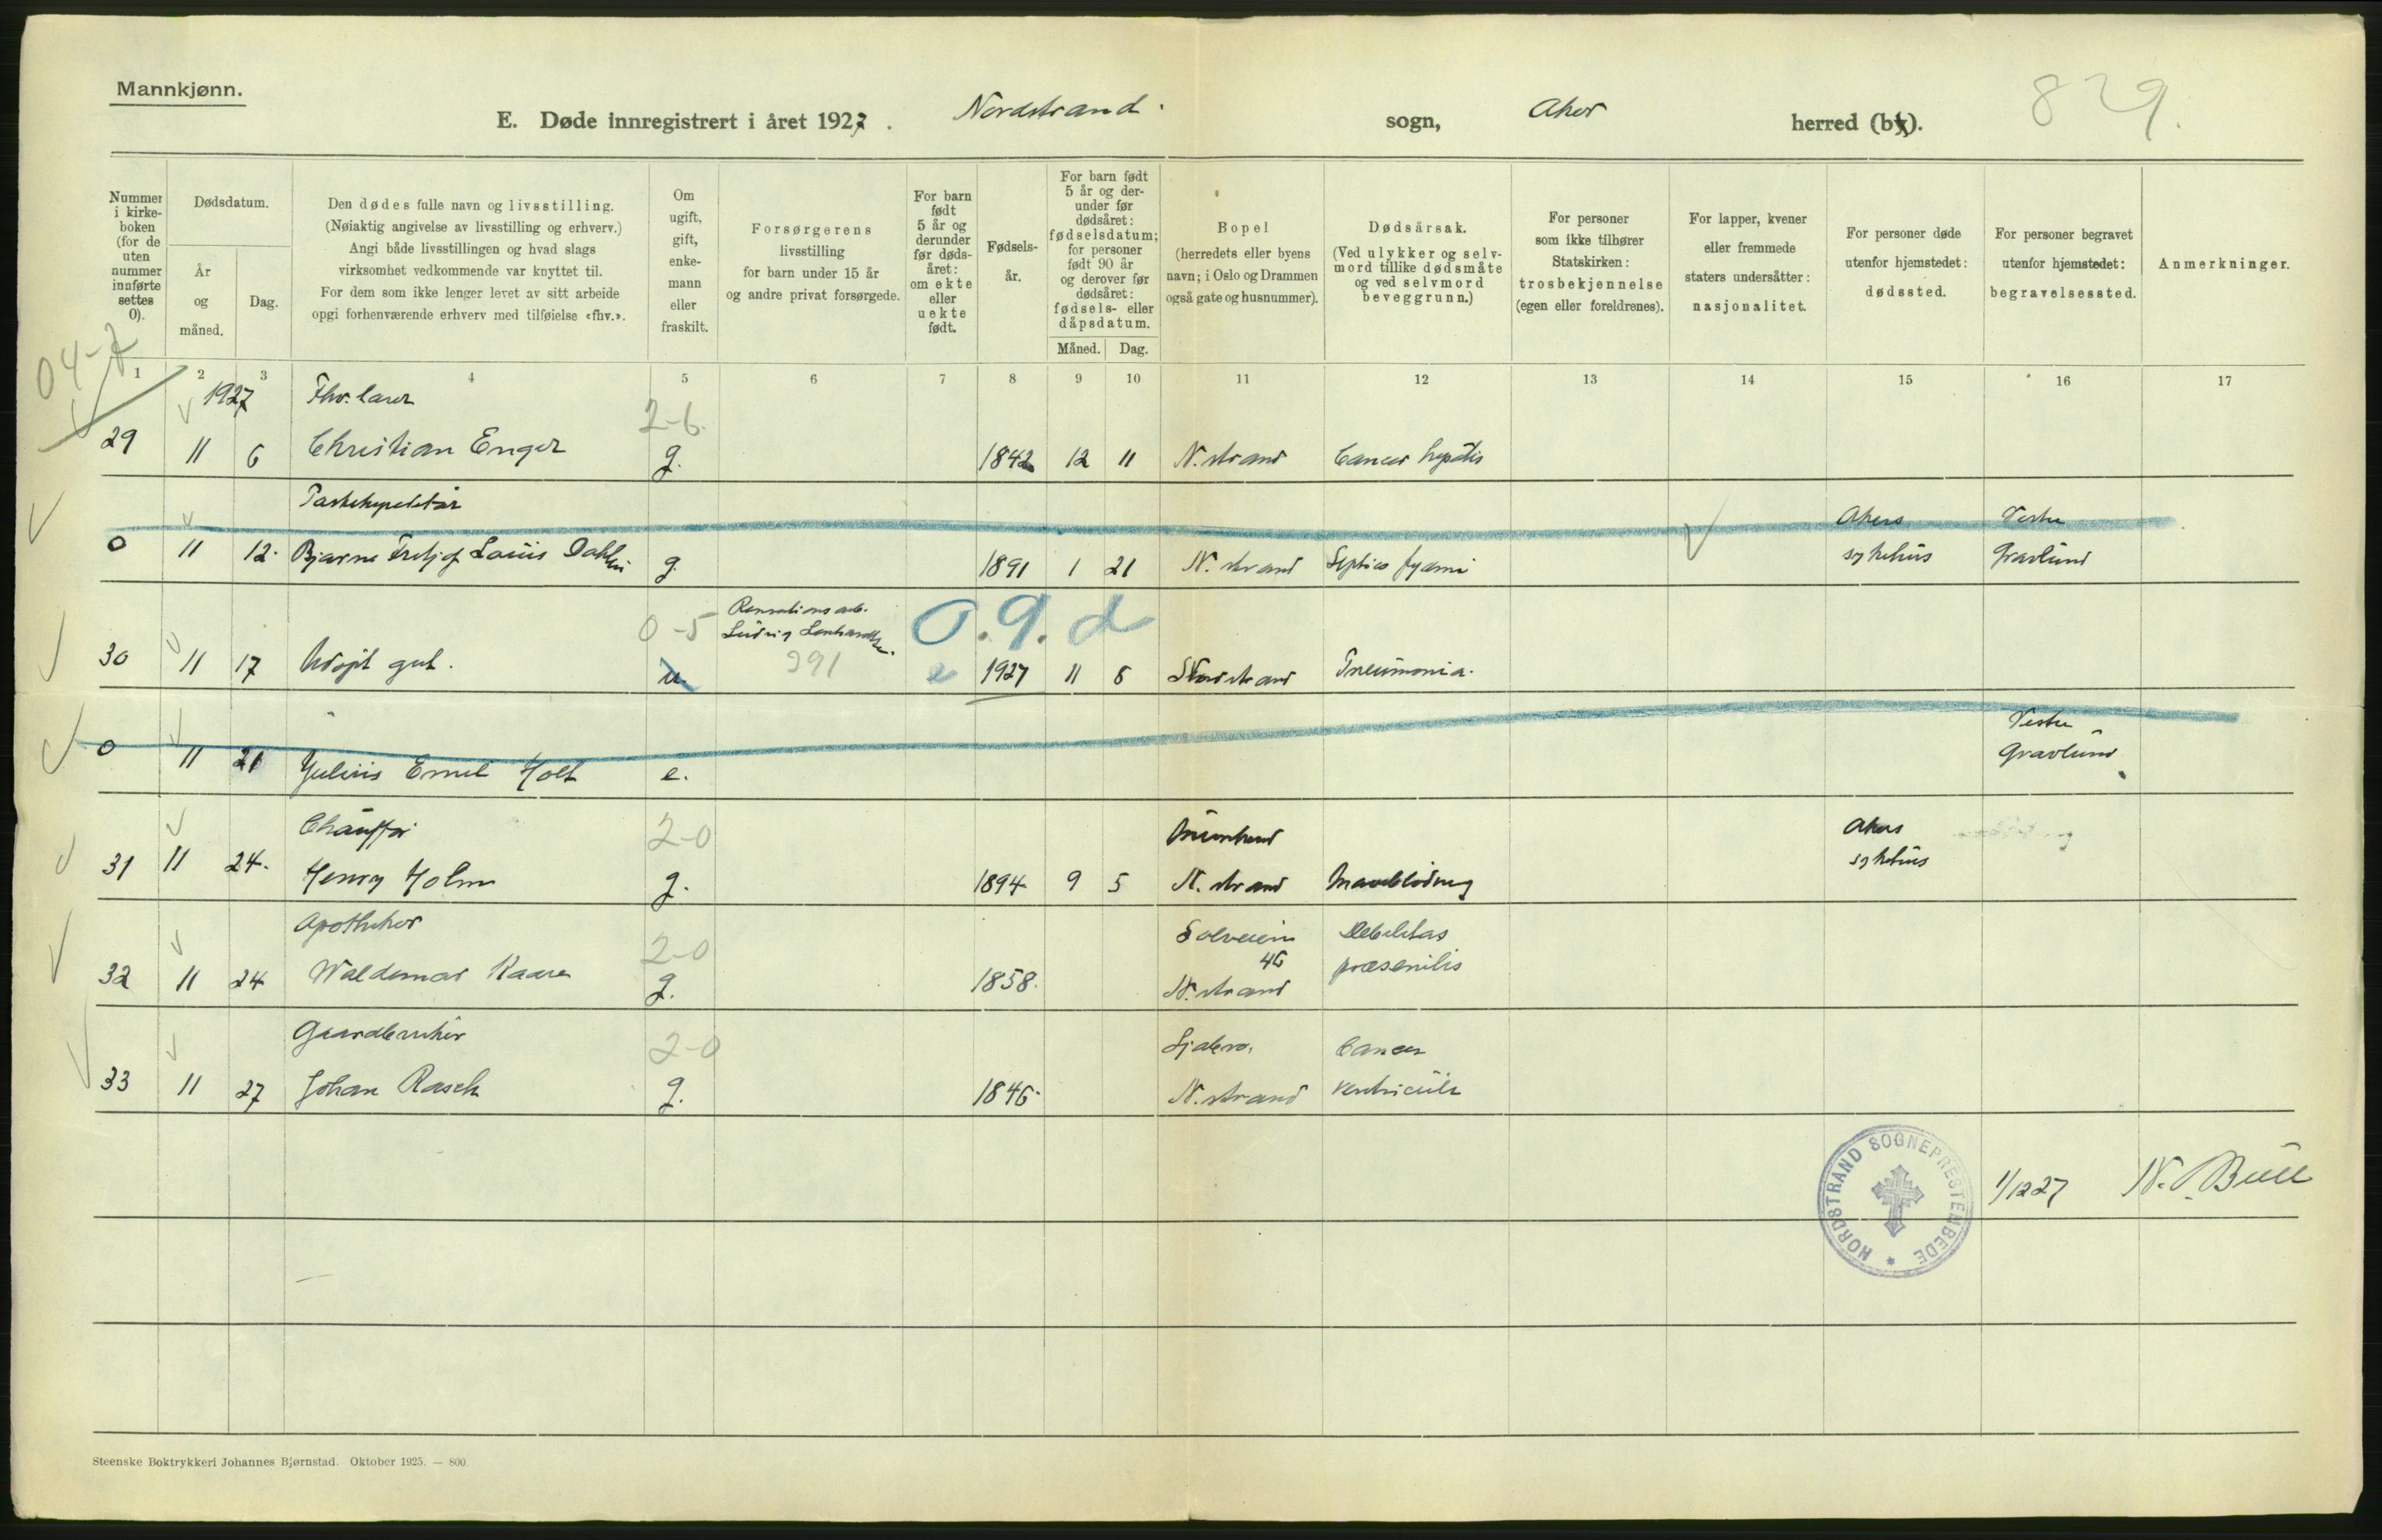 Mannkjønn.
E. Døde innregistrert i året 1927. Nordstrand sogn, Aker herred (by).
829.
Nummer i kirkeboken (for de uten nummer innførte settes 0).
Dødsdatum.
År og måned.
Dag.
Den dødes fulle navn og livsstilling.
(Nøiaktig angivelse av livsstilling og erhverv.)
Angi både livsstillingen og hvad slags
virksomhet vedkommende var knyttet til.
For dem som ikke lenger levet av sitt arbeide
opgi forhenværende erhverv med tilføielse «fhv.».
Om ugift, gift, enkemann eller fraskilt.
Forsørgerens
livsstilling
for barn under 15 år
og andre privat forsørgede.
For barn født 5 år og derunder før dødsåret: om ekte eller uekte født.
Fødselsår.
For barn født 5 år og derunder før dødsåret: fødselsdatum; for personer født 90 år og derover før dødsåret: fødsels- eller dåpsdatum.
Måned. Dag.
Bopel
(herredets eller byens
navn; i Oslo og Drammen
også gate og husnummer).
Dødsårsak.
(Ved ulykker og selvmord tillike dødsmåte og ved selvmord beveggrunn.)
For personer
som ikke tilhører
Statskirken:
trosbekjennelse
(egen eller foreldrenes).
For lapper, kvener
eller fremmede
staters undersåtter:
nasjonalitet.
For personer døde
utenfor hjemstedet:
dødssted.
For personer begravet
utenfor hjemstedet:
begravelsessted.
Anmerkninger.
04-7
1 2 3 4 5 6 7 8 9 10 11 12 13 14 15 16 17
1927 Fhv. lærer 2-6.
29 11 6 Christian Enger g. 1842 12 11 N. strand Cancer hepatis
Akers Vestre
0 11 12. Bjarne Louis g. 1891 1 21 N. strand sykehus Gravlund
0-5 Ludvig O.g.d
30 11 17 Udøpt gut. u. 391 e 1927 11 8 Nordstrand Pneumonia.
Vestre
0 11 21 Julius Emil Holt e. Gravlund
Chauffør 2-0 Munkerud Akers
31 11 24. Henry Holm g. 1894 9 5 N. strand Maveblødning sykehus
Apotheker 2-0 Solveien Debilitas
32 11 24 Waldemar Kaare g. 1858. 46 N. strand præsenilis
Gaardbruker 2-0 Ljabro, Cancer
33 11 27 Johan Rasch g. 1846. N. strand ventriculi
NORDSTRAND SOGNEPRESTEMBEDE
1/12 27 N. Bull
Steenske Boktrykkeri Johannes Bjørnstad. Oktober 1925. — 800.